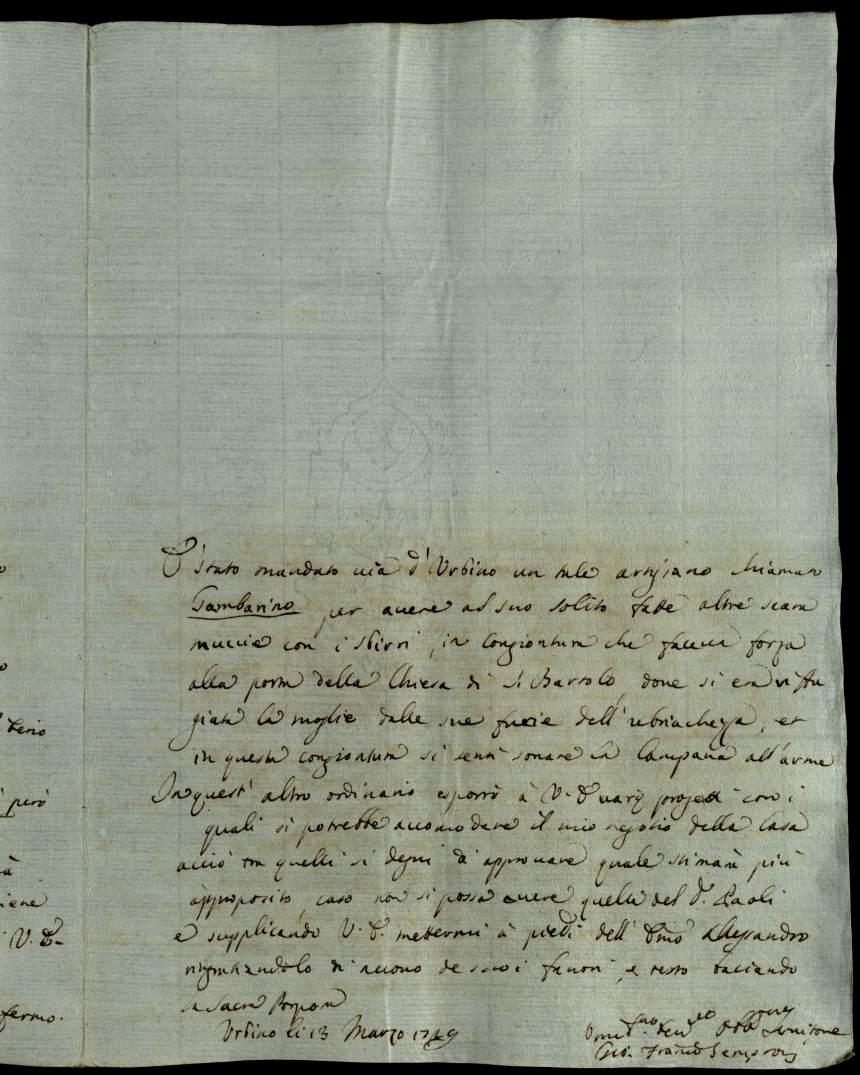 È stato mandato via d'Urbino un tale artigiano chiamato
Tambarino per avere al suo solito fatte altre scara
muccie con i sbirri, in congiontura che faceva forza
alla porta della Chiesa di S. Bartolo, dove si era riffu
giata la moglie dalle sue furie dell'ubriachezza, et
in questa congiontura si sentì sonare la Campana all'arme
In quest'altro ordinario esporrò à V. E. varij progetti con i
quali si potrebbe accomodare il mio negotio della Casa
acciò tra quelli si degni di approvare quale stimarà più
approposito, caso non si possa avere quella del Paoli
e supplicando V. E. mettermi à piedi dell' Emo Alessandro
ringratiandolo di nuovo de suoi favori, e resto baciando
la Sacra Porpora
Urbino li 13 Marzo 17
Servitore
Gio. Franco Semproni
però
fermo.
V. E.